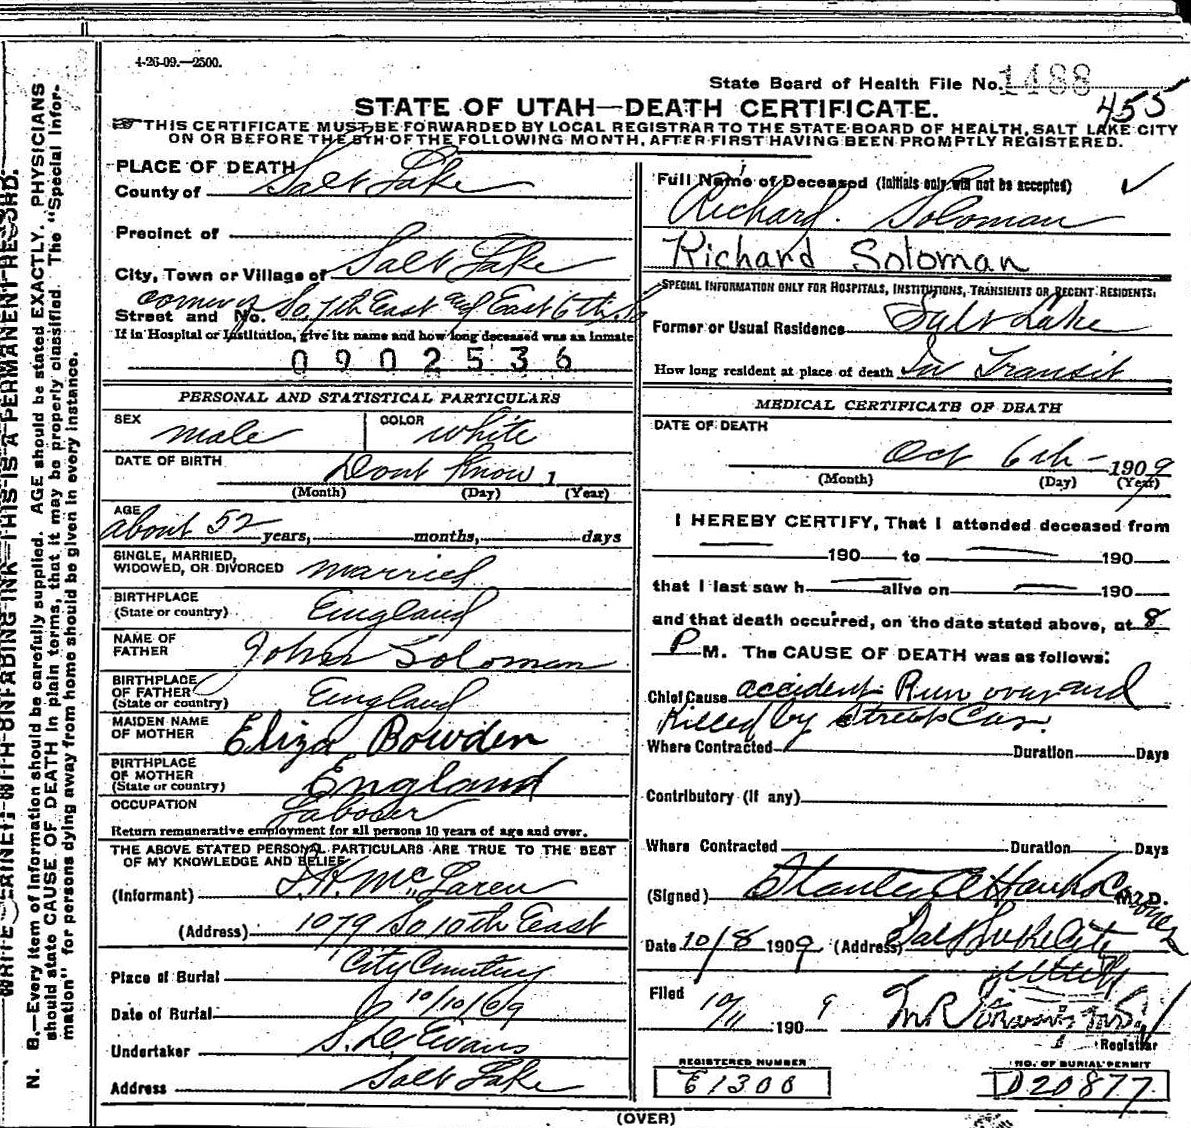 4-26-09.—2500.
State Board of Health File No. 1488
455
STATE OF UTAH—DEATH CERTIFICATE.
THIS CERTIFICATE MUST BE FORWARDED BY LOCAL REGISTRAR TO THE STATE BOARD OF HEALTH, SALT LAKE CITY
ON OR BEFORE THE 5TH OF THE FOLLOWING MONTH, AFTER FIRST HAVING BEEN PROMPTLY REGISTERED.
PLACE OF DEATH
County of Salt Lake
Precinct of
City, Town or Village of Salt Lake
Street and No. corners So 7th East and East 6th So
If in Hospital or Institution, give its name and how long deceased was an inmate
0902536
PERSONAL AND STATISTICAL PARTICULARS
SEX male COLOR white
DATE OF BIRTH Dont Know 1
(Month) (Day) (Year)
AGE
about 52 years, months, days
SINGLE, MARRIED,
WIDOWED, OR DIVORCED married
BIRTHPLACE
(State or country) England
NAME OF
FATHER John Soloman
BIRTHPLACE
OF FATHER
(State or country) England
MAIDEN NAME
OF MOTHER Eliza Bowden
BIRTHPLACE
OF MOTHER
(State or country) England
OCCUPATION Laborer
Return remunerative employment for all persons 10 years of age and over.
THE ABOVE STATED PERSONAL PARTICULARS ARE TRUE TO THE BEST
OF MY KNOWLEDGE AND BELIEF
(Informant) J.H. McLaren
(Address) 1079 So 10th East
Place of Burial City Cemetery
Date of Burial 10/10/09
Undertaker S. D. Evans
Address Salt Lake
Full Name of Deceased (Initials only will not be accepted)
Richard Soloman
Richard Soloman
SPECIAL INFORMATION ONLY FOR HOSPITALS, INSTITUTIONS, TRANSIENTS OR RECENT RESIDENTS.
Former or Usual Residence Salt Lake
How long resident at place of death In Transit
MEDICAL CERTIFICATE OF DEATH
DATE OF DEATH
Oct 6th 1909
(Month) (Day) (Year)
I HEREBY CERTIFY, That I attended deceased from
190 to 190
that I last saw h alive on 190
and that death occurred, on the date stated above, at 8
P M. The CAUSE OF DEATH was as follows:
Chief Cause accident Run over and
Killed by Street Car.
Where Contracted Duration Days
Contributory (if any)
Where Contracted Duration Days
(Signed) Stanley A Hanks Coroner M.D.
Date 10/8 1909 (Address) Salt Lake City
Utah
Filed 10/11 1909
Registrar
REGISTERED NUMBER
E1300
NO. OF BURIAL PERMIT
D20877
(OVER)
WRITE PLAINLY, WITH UNFADING INK—THIS IS A PERMANENT RECORD.
N. B.—Every item of information should be carefully supplied. AGE should be stated EXACTLY. PHYSICIANS
should state CAUSE OF DEATH in plain terms, that it may be properly classified. The "Special Infor-
mation" for persons dying away from home should be given in every instance.